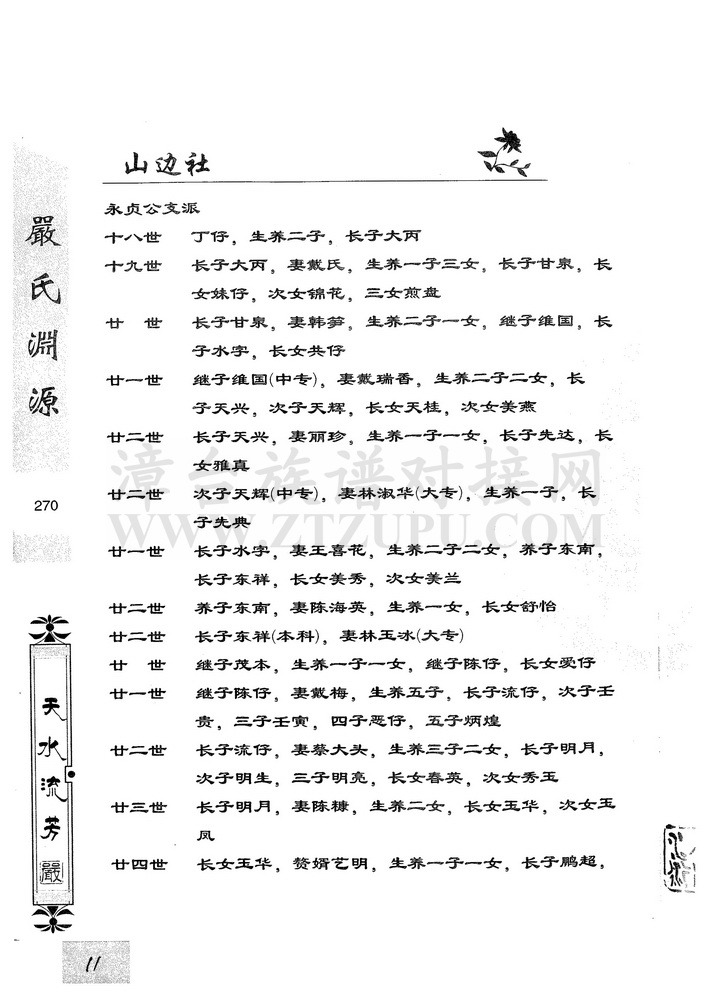 山边社
永贞公支派
十八世 丁仔，生养二子，长子大丙
十九世 长子大丙，妻戴氏，生养一子三女，长子甘泉，长
女妹仔，次女锦花，三女煎盘
廿 世 长子甘泉，妻韩笋，生养二子一女，继子维国，长
子水字，长女共仔
廿一世 继子维国(中专)，妻戴瑞香，生养二子二女，长
子天兴，次子天辉，长女天桂，次女美燕
廿二世 长子天兴，妻丽珍，生养一子一女，长子先达，长
女雅真
廿二世 次子天辉(中专)，妻林淑华(大专)，生养一子，长
子先典
廿一世 长子水字，妻王喜花，生养二子二女，养子东南，
长子东祥，长女美秀，次女美兰
廿二世 养子东南，妻陈海英，生养一女，长女舒怡
廿二世 长子东祥(本科)，妻林玉冰(大专)
廿 世 继子茂本，生养一子一女，继子陈仔，长女爱仔
廿一世 继子陈仔，妻戴梅，生养五子，长子流仔，次子壬
贵，三子壬寅，四子恶仔，五子炳煌
廿二世 长子流仔，妻蔡大头，生养三子二女，长子明月，
次子明生，三子明亮，长女春英，次女秀玉
廿三世 长子明月，妻陈糠，生养二女，长女玉华，次女玉
凤
廿四世 长女玉华，赘婿艺明，生养一子一女，长子鹏超，
嚴氏淵源
270
天水流芳
嚴
11
漳台族谱对接网
WWW.ZTZUPU.COM